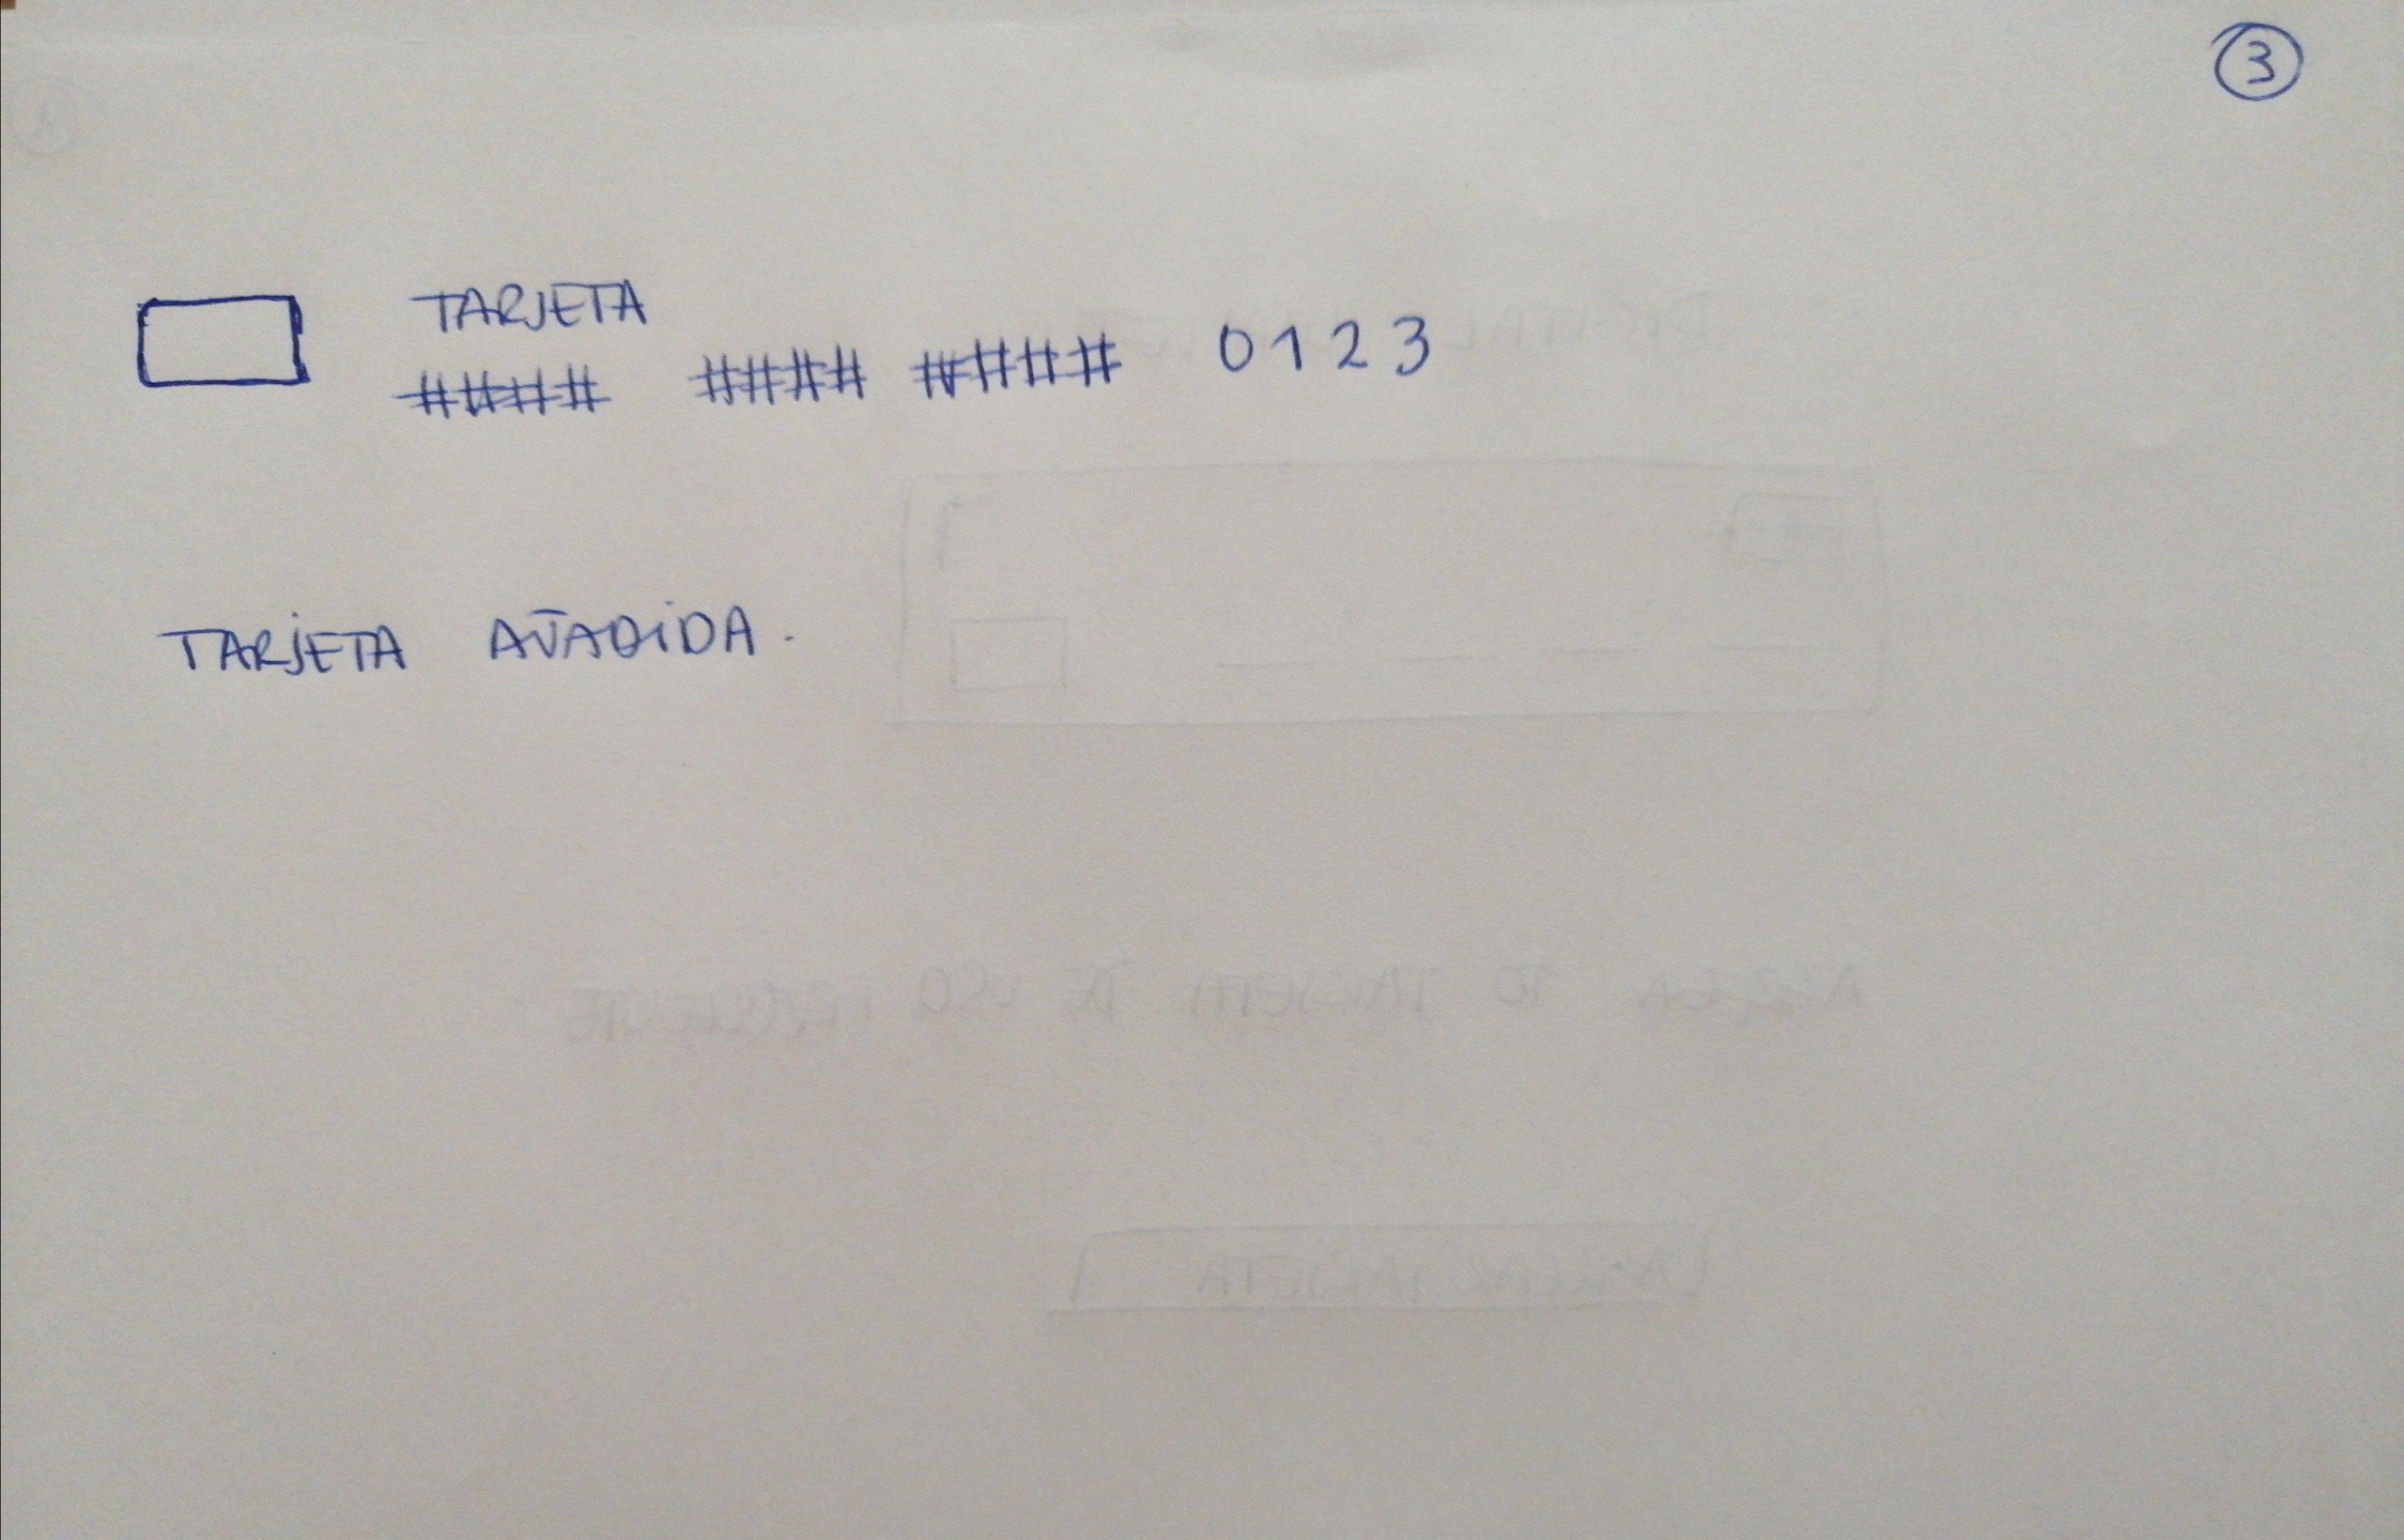 3
TARJETA
#### #### #### 0123
TARJETA AÑADIDA.